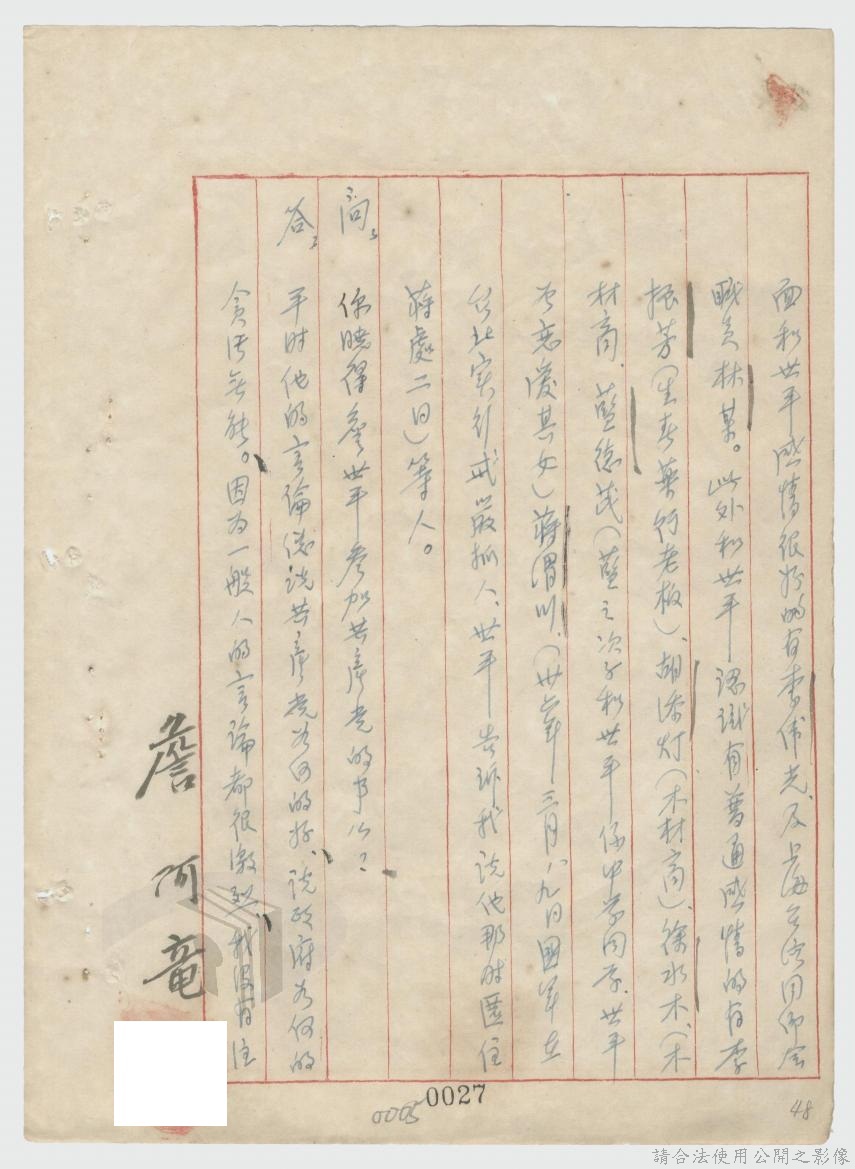 面和世平感情很好的有李偉光、及上海台湾同鄉会
職員林某。此外和世平認識有普通感情的有李
振芳(生春藥行老板)、胡添灯(木材商)、徐水木、(木
材商、藍德茂(藍之次子和世平係中学同学、世平
曾恋愛其女)蔣渭川、(卅六年三月八、九日國軍在
台北实行戒嚴抓人、世平告訴我説他那时匿住
蔣處二日)等人。
問: 你曉得詹世平參加共產党的事么?
答: 平时他的言論儘説共產党为何的好、説政府为何的
貪污無能。因为一般人的言論都很激烈、我没有注
詹阿竜
0005
0027
48
請合法使用公開之影像